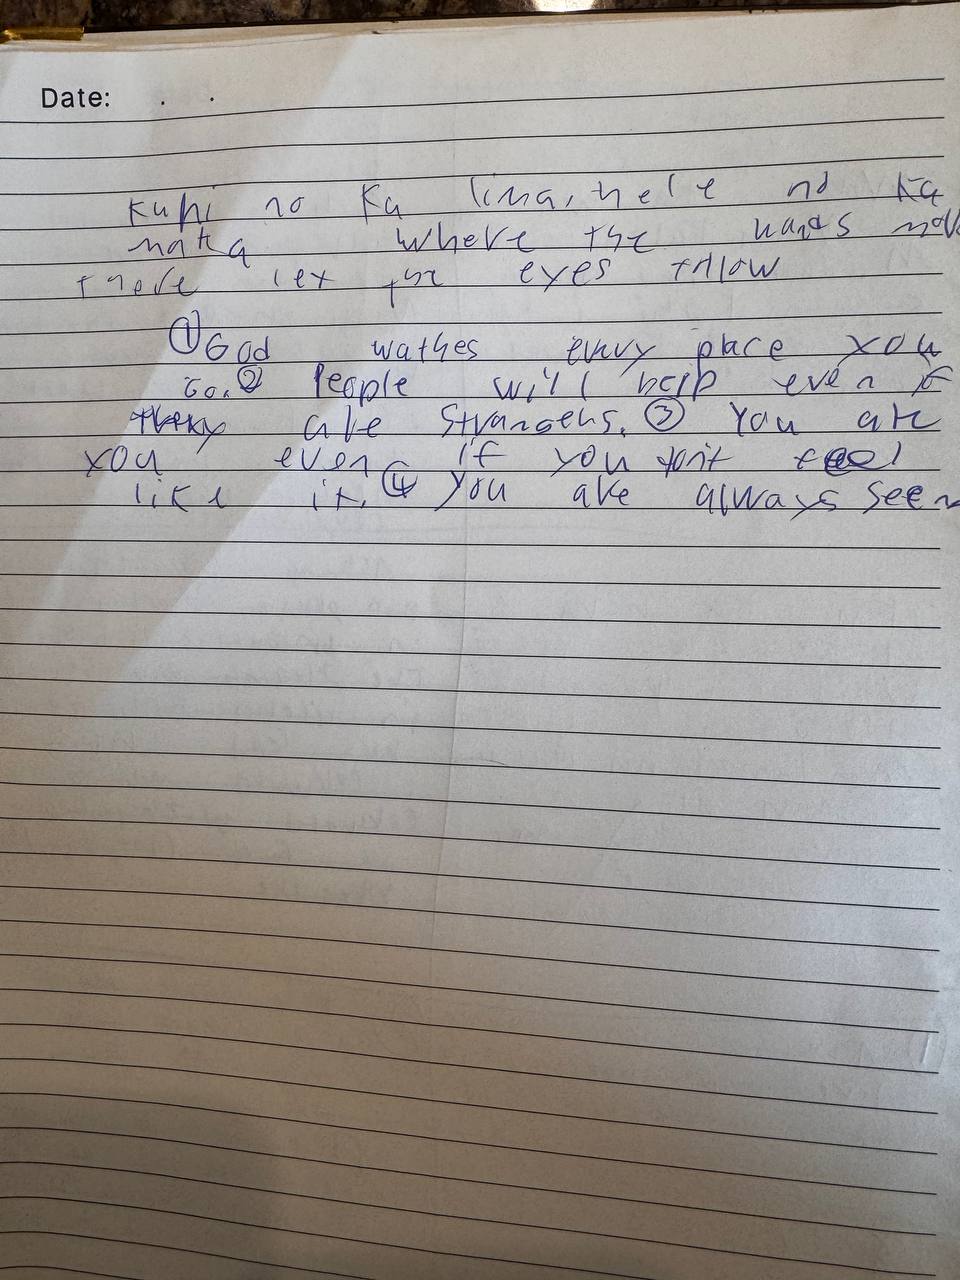 Date: . .
Kuhi no Ka lima, hele no Ka
maka where the hands move
there let the eyes follow
① God wathes every place you
Go. ② People will help even if
they are Strangers. ③ You are
you even if you don't feel
like it. ④ you are always seen